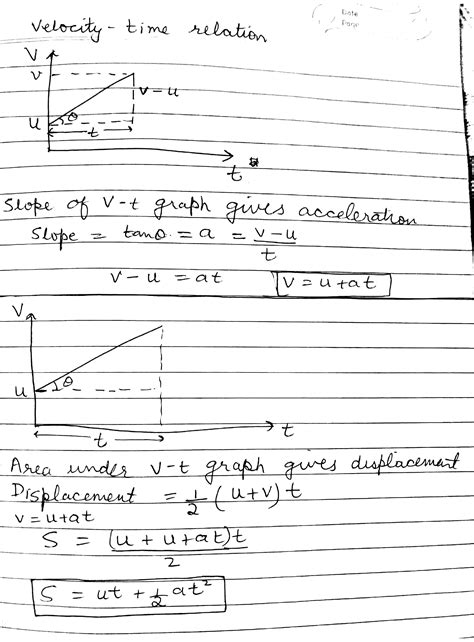 Velocity - time relation
Date
Page
V
v
v-u
u θ
t
t
Slope of V-t graph gives acceleration
Slope = tanθ = a = v-u/t
v-u = at v = u+at
V
u θ
t
t
Area under V-t graph gives displacement
Displacement = 1/2 (u+v) t
v = u+at
S = (u + u+at)t/2
S = ut + 1/2 at²